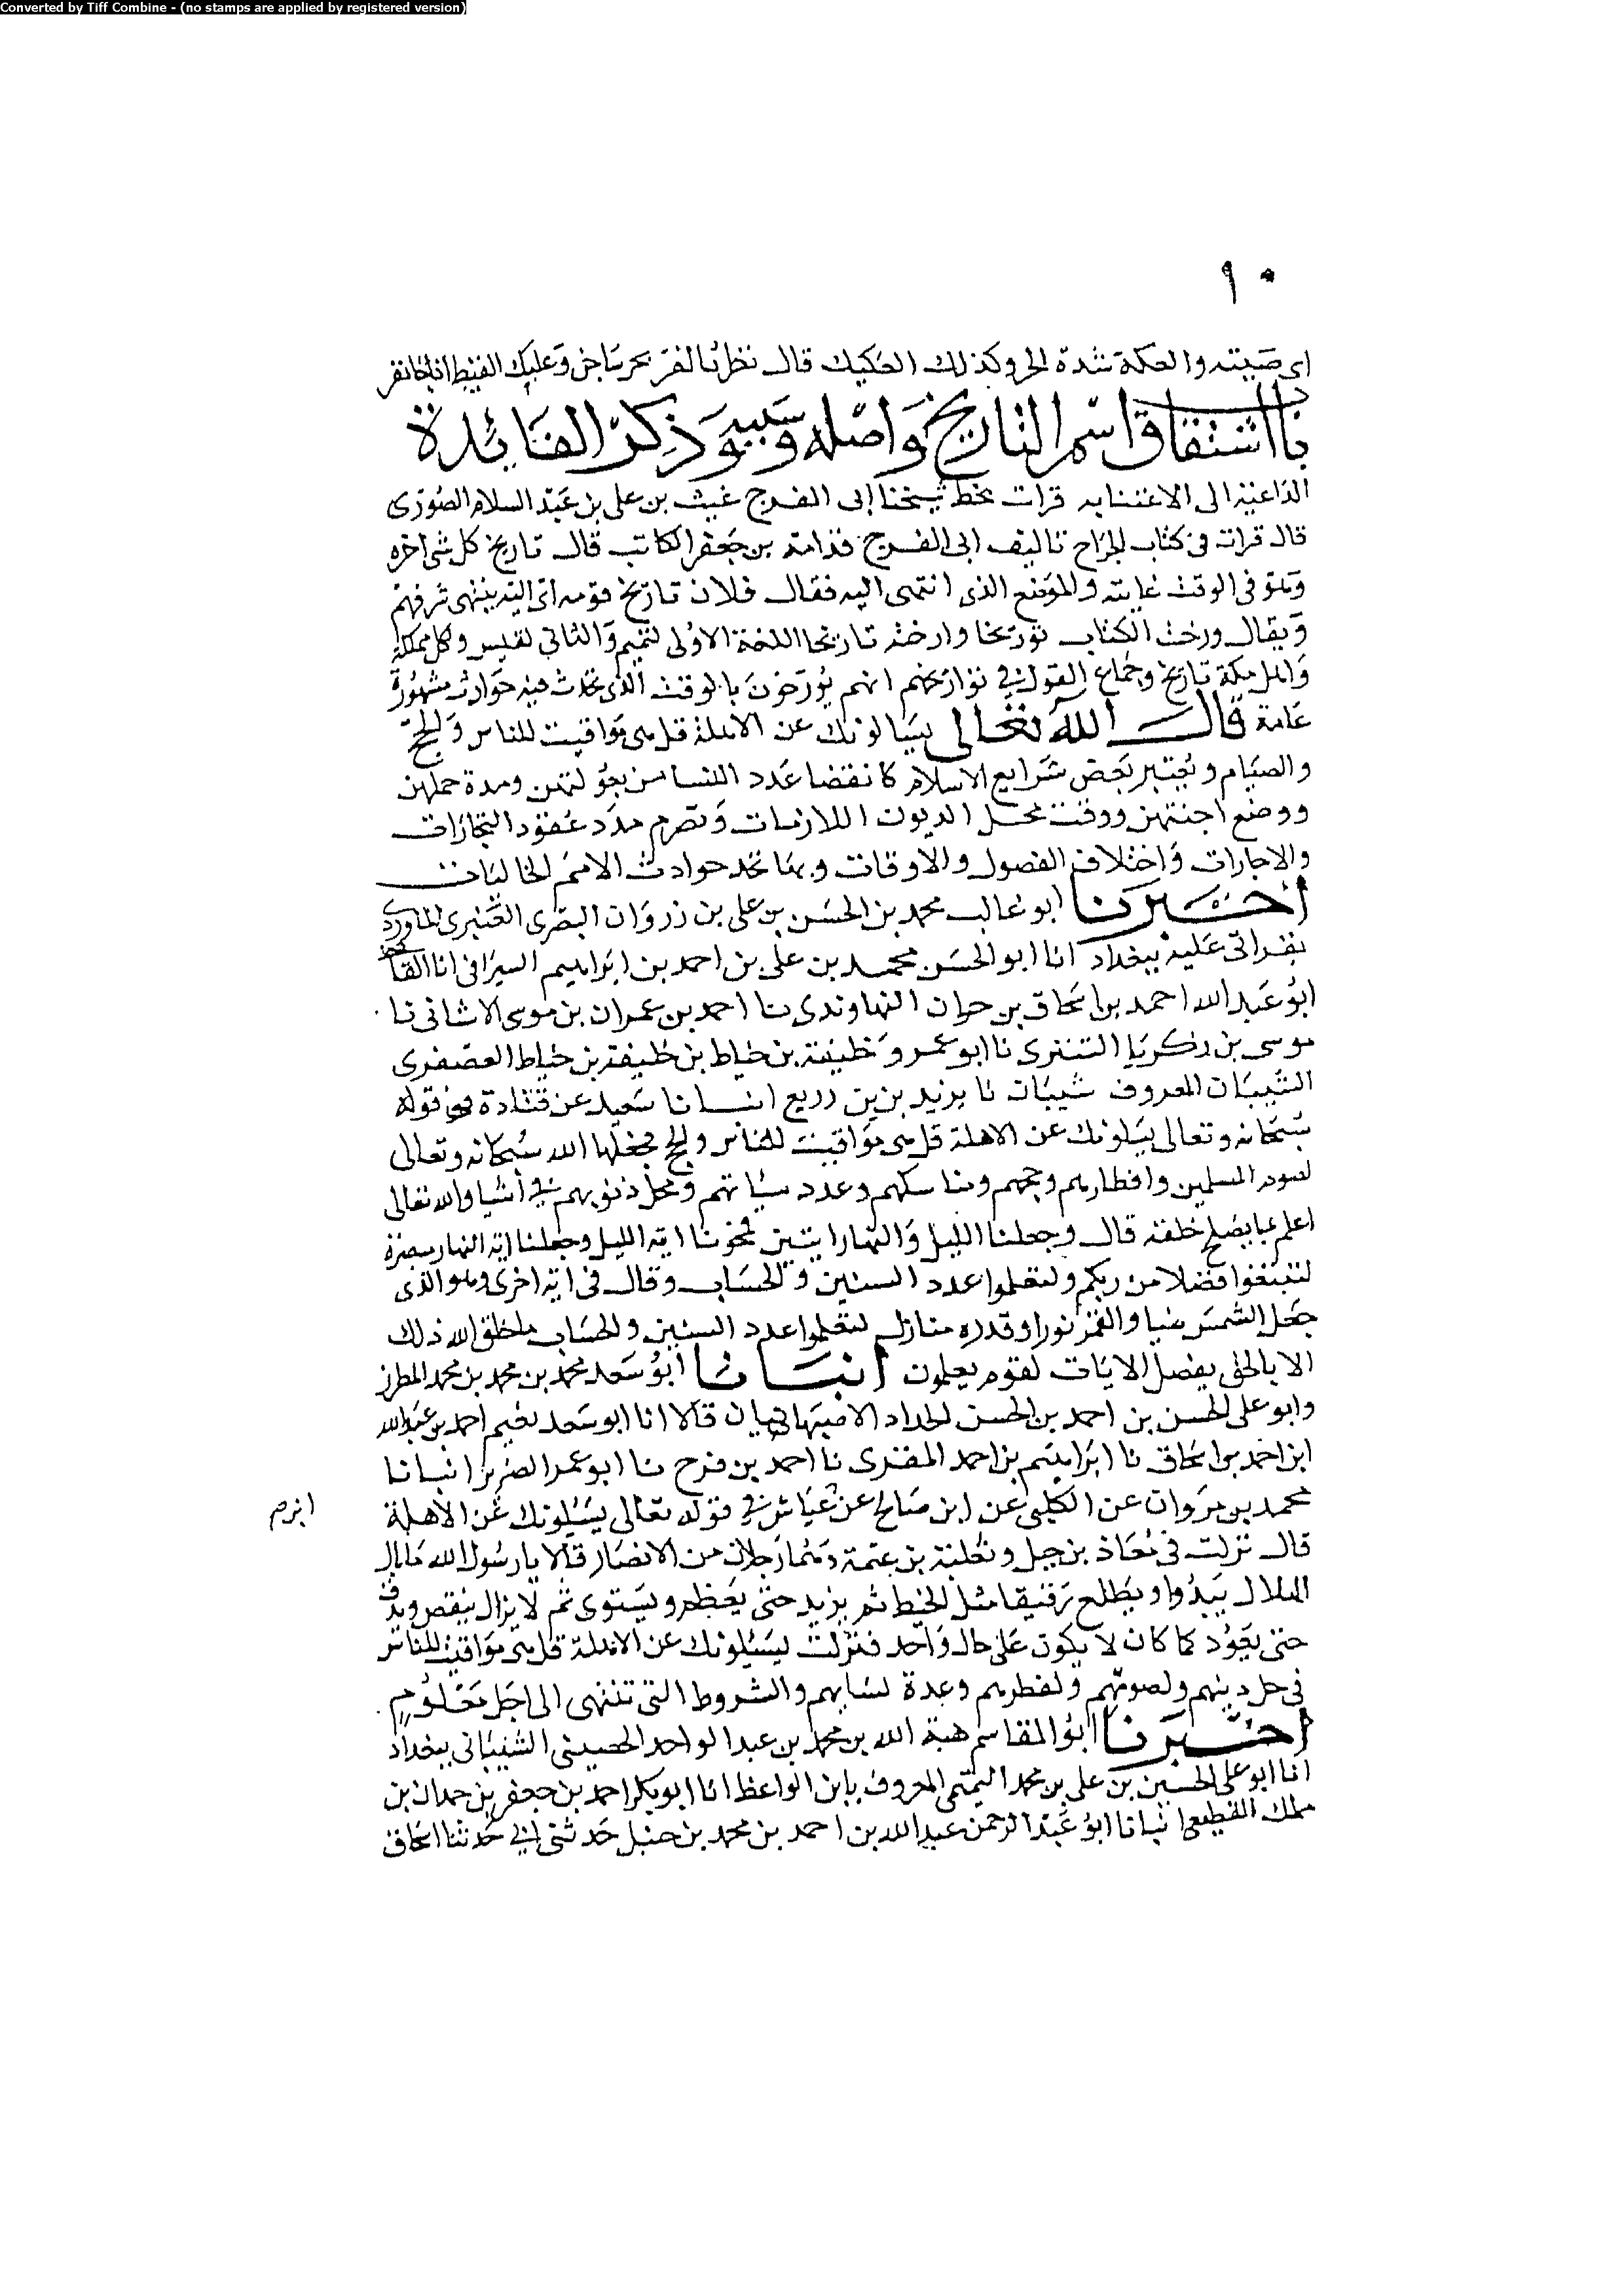 Converted by Tiff Combine - (no stamps are applied by registered version)
١٠
اى صيته والعكة شدة الحر وكذلك العكيك قال
باب اشتقاق اسم التاريخ واصله وسببه وذكر الفائدة
الداعية الى الاعتنا به قرات بخط شيخنا ابى الفرج غيث بن على بن عبد السلام الصورى
قال قرات فى كتاب الخراج تاليف ابى الفرج قدامة بن جعفر الكاتب قال تاريخ كل شى اخره
وهو فى الوقت غايته والموضع الذى انتهى اليه فقال فلان تاريخ قومه اى اليه ينتهى شرفهم
ويقال ورخت الكتاب توريخا وارخته تاريخا اللغة الاولى لتميم والثانى لقيس ولكل مملكة
تاريخ وجماع القول فى تواريخهم انهم يورخون بالوقت الذى تحدث فيه حوادث مشهورة
عامة قال الله تعالى يسالونك عن الاهلة قل هى مواقيت للناس والحج
والصيام ويعتبر بعض شرايع الاسلام كانقضا عدد النسا من بعولتهن ومدة حملهن
ووضع اجنتهن ووقت محل الديون اللازمات وتصرم مدد عقود التجارات
والاجارات واختلاف الفصول والاوقات وبها تحد حوادث الامم الخاليات
اخبرنا ابو غالب محمد بن الحسن بن على بن زروان البصرى العنبرى الماوردى
بقراتى عليه ببغداد انا ابو الحسن محمد بن على بن احمد بن ابراهيم السيرافى انا القاضى
ابو عبد الله احمد بن اسحاق بن حران النهاوندى نا احمد بن عمران بن موسى الاشنانى نا
موسى بن زكريا التسترى نا ابو عمرو خليفة بن خياط بن خليفة بن خياط العصفرى
الشيبان المعروف شيبان نا يزيد بن زريع انبانا سعيد عن قتادة فى قوله
سبحانه وتعالى يسلونك عن الاهلة قل هى مواقيت للناس والحج فجعلها الله سبحانه وتعالى
لصوم المسلمين وافطارهم وحجهم ومناسكهم وعدد نسائهم ومحل ديونهم فى اشيا والله تعالى
اعلم بما يصلح خلقه قال وجعلنا الليل والنهار ايتين فمحونا اية الليل وجعلنا اية النهار مبصرة
لتبتغوا فضلا من ربكم ولتعلموا عدد السنين والحساب وقال فى اية اخرى وهو الذى
جعل الشمس ضيا والقمر نورا وقدره منازل لتعلموا عدد السنين والحساب ما خلق الله ذلك
الا بالحق يفصل الايات لقوم يعلمون انبانا ابو سعد محمد بن محمد بن محمد المطرز
وابو على الحسن بن احمد بن الحسن الحداد الاصبهانيان قالا انا ابو سعد نعيم احمد بن عبد الله
ابن احمد بن اسحاق نا ابراهيم بن احمد المقرى نا احمد بن فرح نا ابو عمر الضرير انبانا
محمد بن مروان عن الكلبى عن ابن صالح عن عياش فى قوله تعالى يسئلونك عن الاهلة
قال نزلت فى معاذ بن جبل وثعلبة بن عتمة وهما رجلان من الانصار قالا يا رسول الله ما بال
الهلال يبدوا ويطلع رقيقا مثل الخيط ثم يزيد حتى يعظم ويستوى ثم لا يزال ينقص ويدق
حتى يعود كما كان لا يكون على حال واحد فنزلت يسئلونك عن الاهلة قل هى مواقيت للناس
فى حل دينهم ولصومهم ولفطرهم وعدة نسايهم والشروط التى تنتهى الى اجل معلوم
اخبرنا ابو القاسم هبة الله بن محمد بن عبد الواحد الحصينى الشيبانى ببغداد
انا ابو على الحسين بن على بن محمد التيمى المعروف بابن الواعظ انا ابو بكر احمد بن جعفر بن حمدان بن
ملك القطيعى انبانا ابو عبد الرحمن عبد الله بن احمد بن محمد بن حنبل حدثنى ابى حدثنا اسحاق